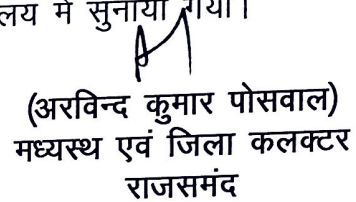 लय में सुनाया गया।
(अरविन्द कुमार पोसवाल)
मध्यस्थ एवं जिला कलक्टर
राजसमंद